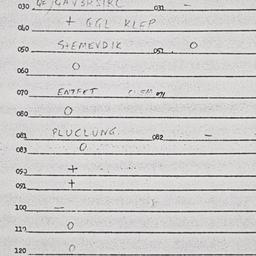 030 031 -
040 + GGL KLEP
050 STEMEVDIK 051. O
060 O
070 ENTFET 071
080 O
081 PLUCLUNG 082 -
083 O
092 +
091 +
100 -
110 O
120 O